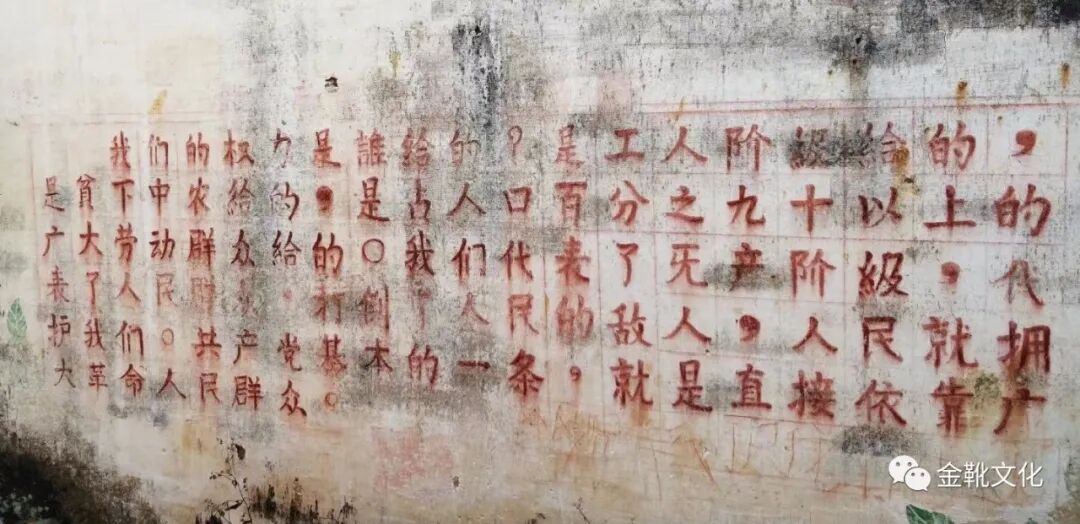 我们的权力是誰给的？是工人阶級给的，
是貧下中农給的，是占人口百分之九十以上的
广大劳动群众給的。我们代表了无产阶級，代
表了人民群众，打倒了人民的敌人，人民就拥
护我们。共产党基本的一条，就是直接依靠广
大革命人民群众。
金靴文化